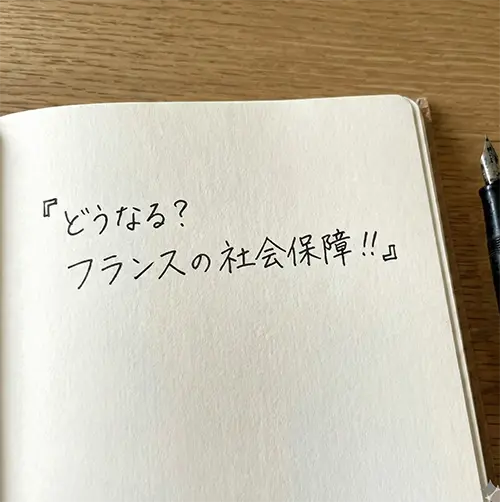 『どうなる?
フランスの社会保障!!』